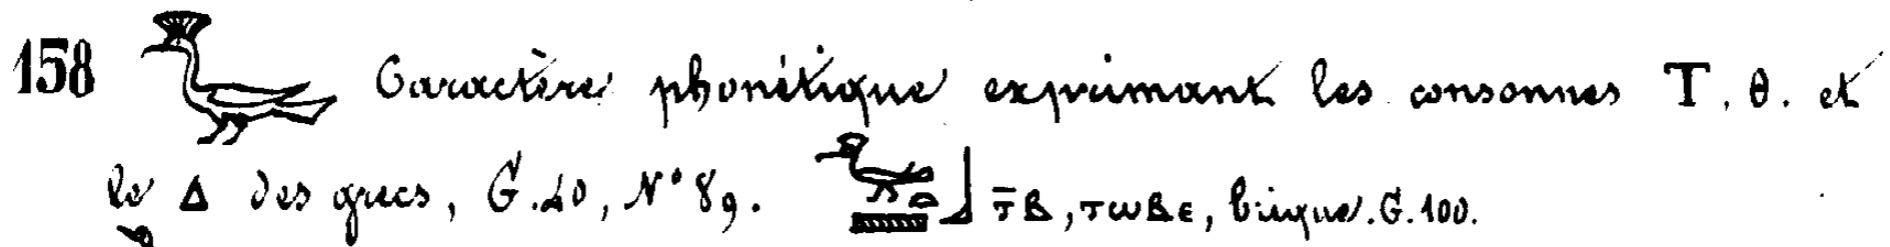 158 Caractère phonétique exprimant les consonnes T, θ. et
le Δ des grecs, G. 40, N° 89. ⲧ̄ⲃ, ⲧⲱⲃⲉ, brique. G. 100.